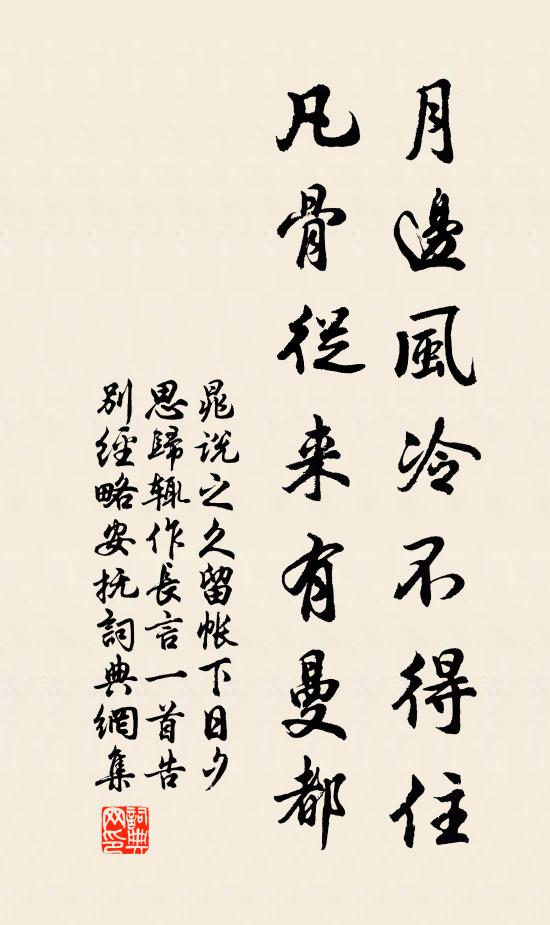 月邊風冷不得住
凡骨從来有曼都
晁説之久留帐下日夕
思歸輒作長言一首告
别經略安抚詞典網集
詞典網印